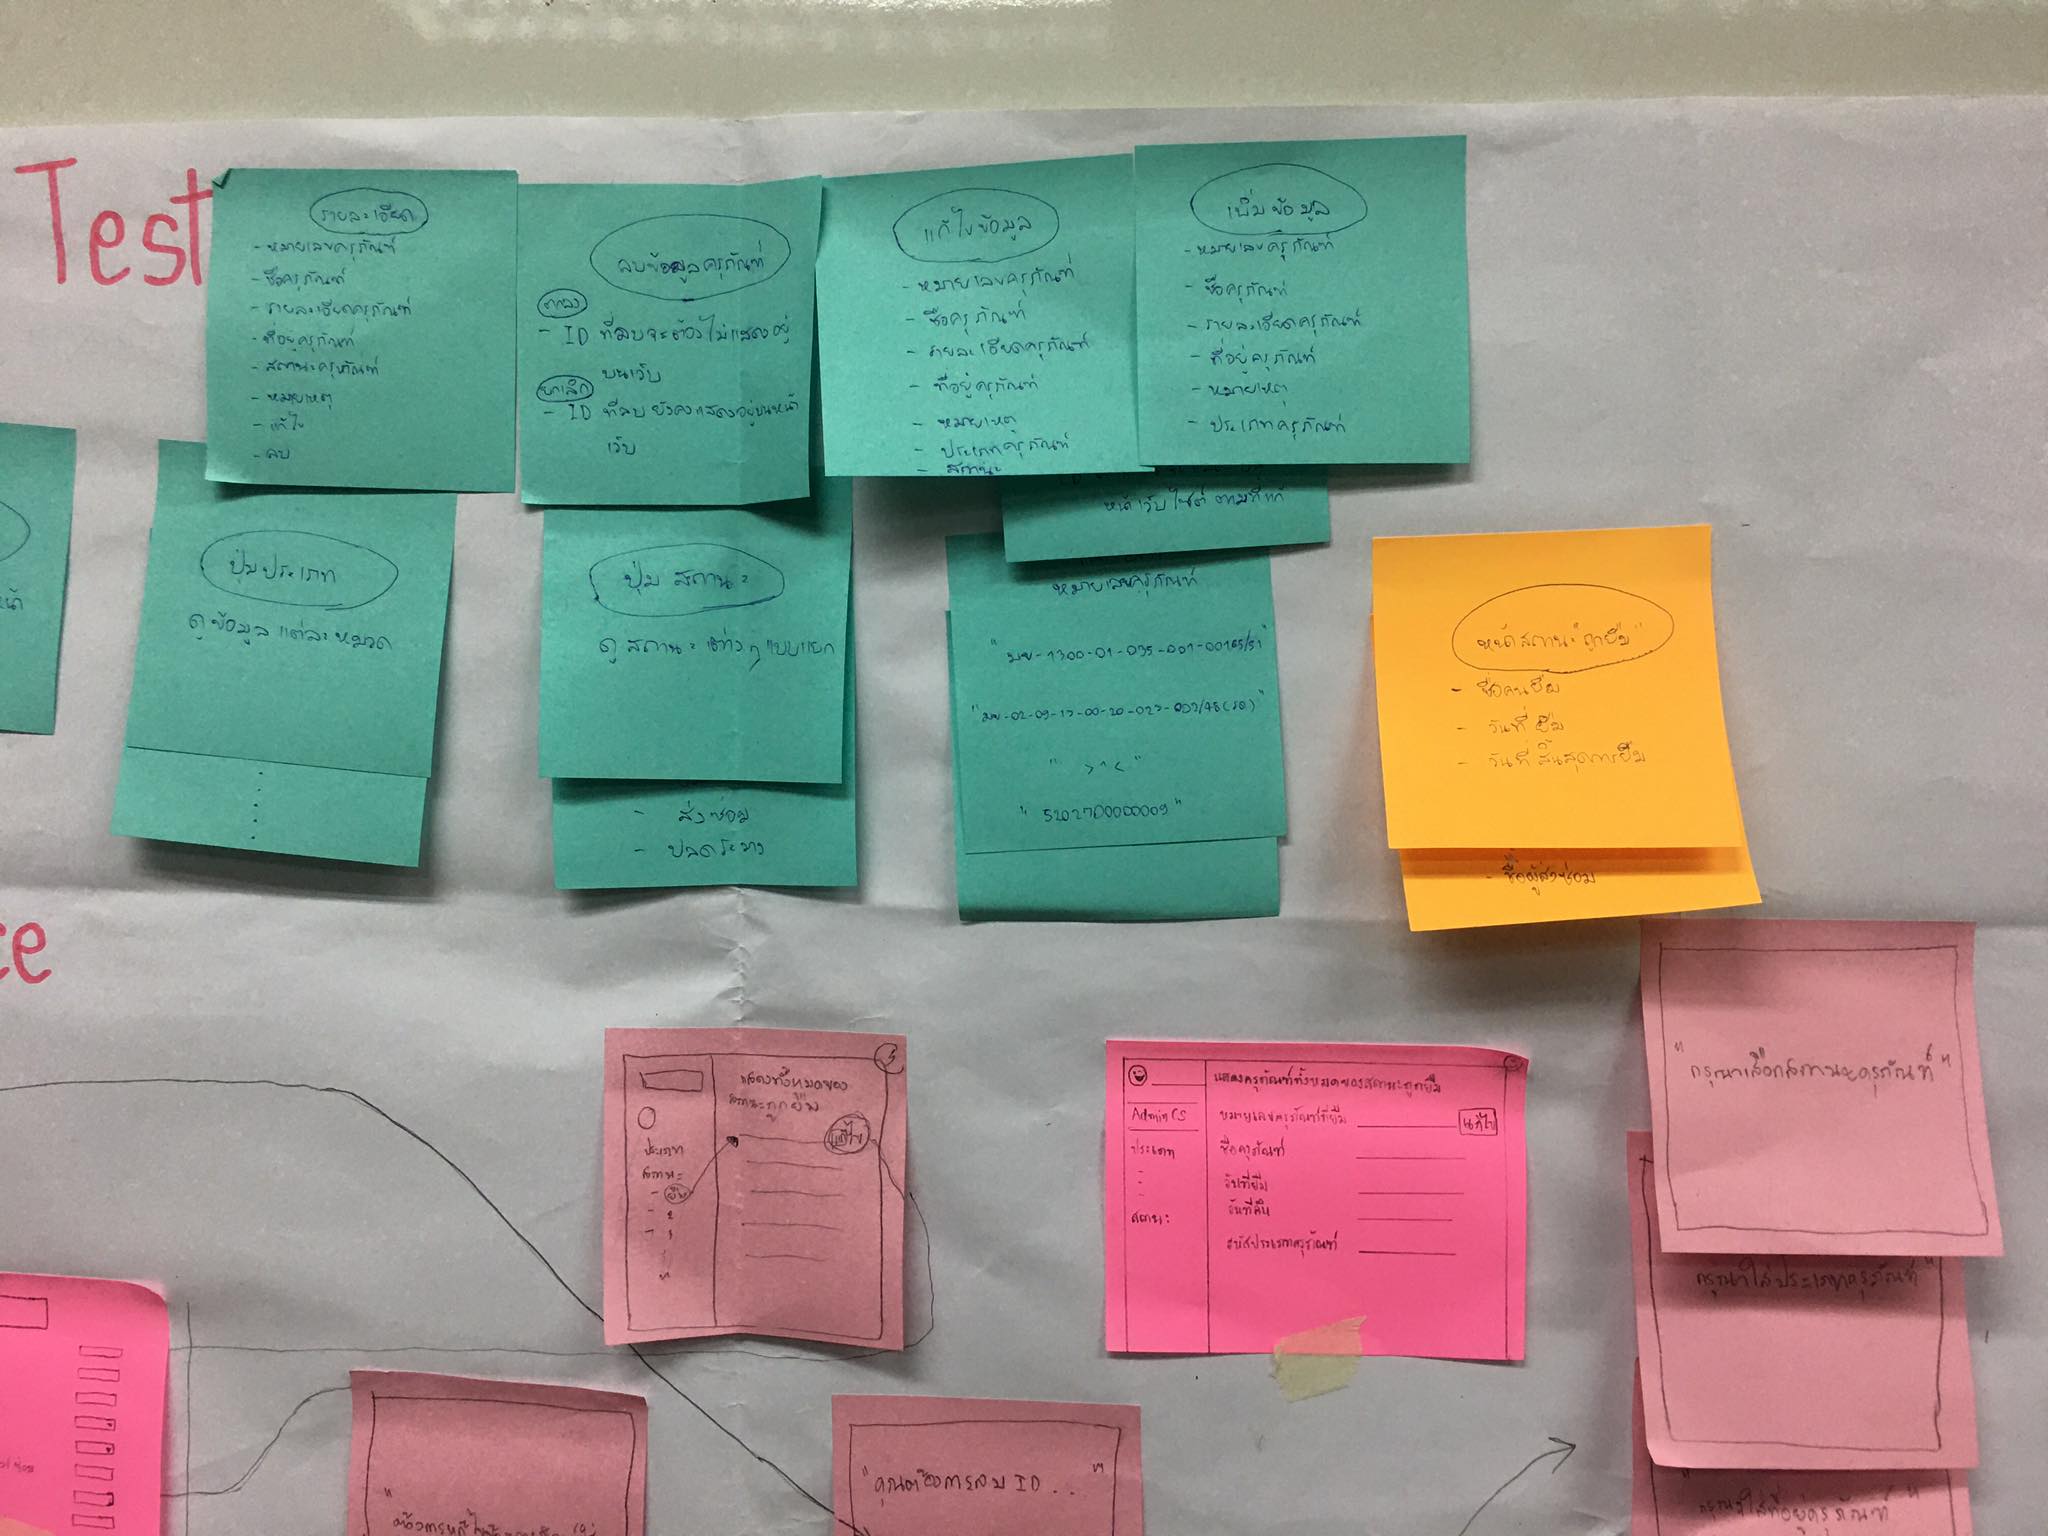 Test
รายละเอียด
- หมายเลขครุภัณฑ์
- ชื่อครุภัณฑ์
- รายละเอียดครุภัณฑ์
- ที่อยู่ครุภัณฑ์
- สถานะครุภัณฑ์
- หมายเหตุ
- แก้ไข
- ลบ
ลบข้อมูลครุภัณฑ์
ตกลง
- ID ที่ลบจะต้องไม่แสดงอยู่
บนเว็บ
ยกเลิก
- ID ที่ลบยังคงแสดงอยู่บนหน้า
เว็บ
แก้ไขข้อมูล
- หมายเลขครุภัณฑ์
- ชื่อครุภัณฑ์
- รายละเอียดครุภัณฑ์
- ที่อยู่ครุภัณฑ์
- หมายเหตุ
- ประเภทครุภัณฑ์
- สถานะ
เพิ่มข้อมูล
- หมายเลขครุภัณฑ์
- ชื่อครุภัณฑ์
- รายละเอียดครุภัณฑ์
- ที่อยู่ครุภัณฑ์
- หมายเหตุ
- ประเภทครุภัณฑ์
หน้าเว็บไซต์ ตามที่แก้
ปุ่มประเภท
ดูข้อมูลแต่ละหมวด
ปุ่ม สถานะ
ดูสถานะต่างๆแบบแยก
- ส่งซ่อม
- ปลดระวาง
หมายเลขครุภัณฑ์
" >^< "
"5202700000009"
หน้าสถานะ"ถูกยืม"
- ชื่อคนยืม
- วันที่ยืม
- วันที่สิ้นสุดการยืม
- ชื่อผู้ส่งซ่อม
ce
แสดงทั้งหมดของ
สถานะถูกยืม
แก้ไข
ประเภท
สถานะ
- ยืม
- 2
- 3
แสดงครุภัณฑ์ทั้งหมดของสถานะถูกยืม
Admin CS
หมายเลขครุภัณฑ์ที่ยืม
แก้ไข
ประเภท
ชื่อครุภัณฑ์
วันที่ยืม
วันที่คืน
สถานะ
รหัสประเภทครุภัณฑ์
"กรุณาเลือกสถานะครุภัณฑ์"
กรุณาใส่ประเภทครุภัณฑ์"
"กรุณาใส่ที่อยู่ครุภัณฑ์"
"คุณต้องการลบ ID . . "